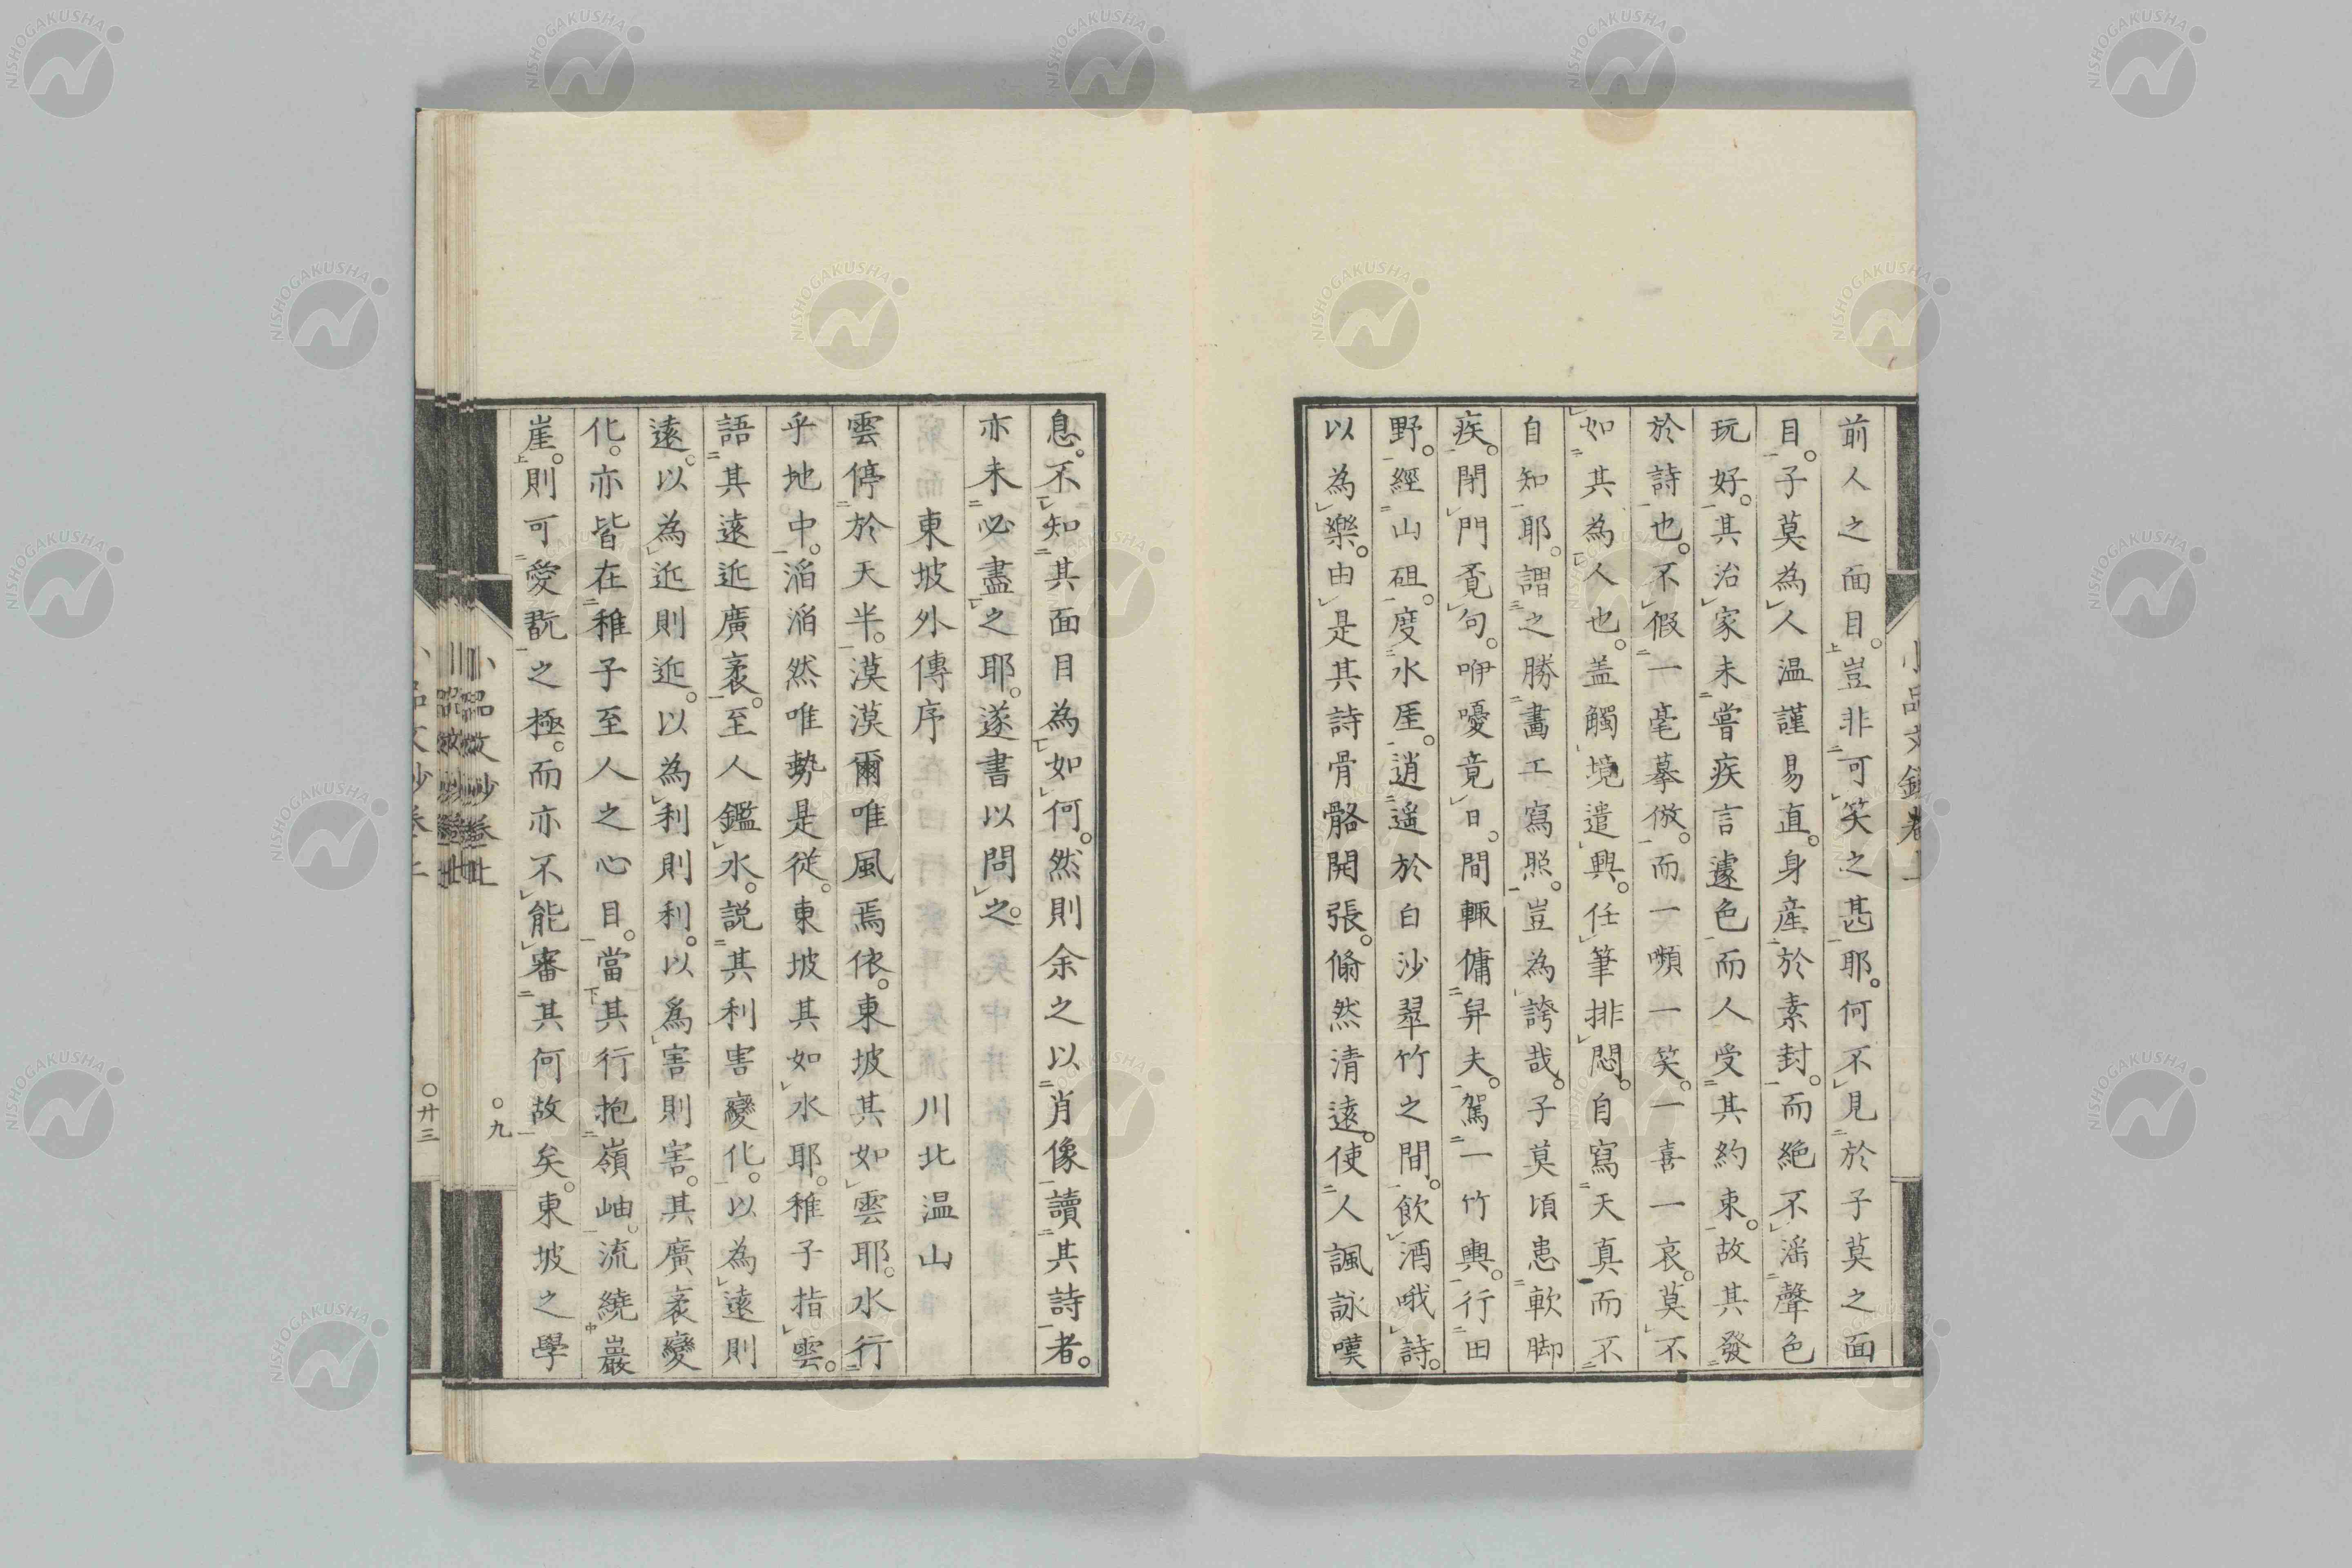 前人之面目。豈非可笑之甚耶。何不見於子莫之面
目。子莫為人温謹易直。身産於素封。而絶不滛聲色
玩好。其治家未嘗疾言遽色而人受其約束。故其發
於詩也。不假一毫摹倣。而一嚬一笑。一喜一哀。莫不
如其為人也。盖觸境遣興。任筆排悶。自寫天真而不
自知耶。謂之勝畵工寫照。豈為誇哉。子莫頃患軟脚
疾。閉門覔句。咿嚘竟日。間輙傭舁夫。駕一竹輿。行田
野。經山砠。度水厓。逍遥於白沙翠竹之間。飲酒哦詩。
以為樂。由是其詩骨骼開張。翛然清遠。使人諷詠嘆
息。不知其面目為如何。然則余之以肖像讀其詩者。
亦未必盡之耶。遂書以問之。
東坡外傳序 川北温山
雲停於天半。漠漠爾唯風焉依。東坡其如雲耶。水行
乎地中。滔滔然唯勢是從。東坡其如水耶。稚子指雲。
語其遠近廣袤。至人鑑水。説其利害變化。以為遠則
遠。以為近則近。以為利則利。以爲害則害。其廣袤變
化。亦皆在稚子至人之心目。當其行抱嶺岫。流繞巖
崖。則可愛翫之極。而亦不能審其何故矣。東坡之學
小品文鈔卷上
〇九
〇廿三